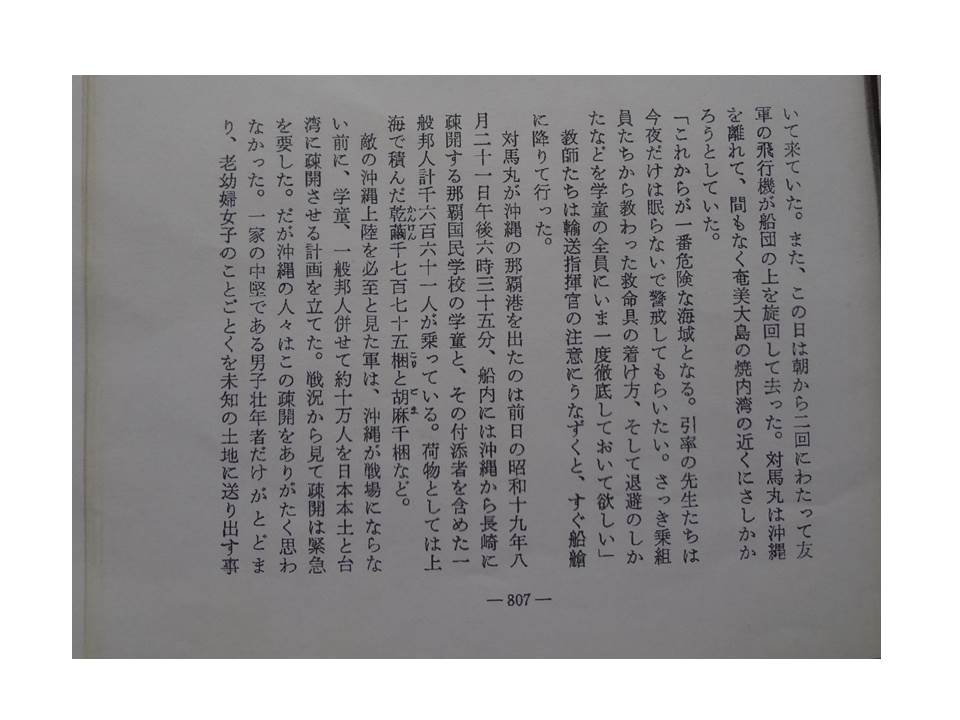 いて来ていた。また、この日は朝から二回にわたって友
軍の飛行機が船団の上を旋回して去った。対馬丸は沖縄
を離れて、間もなく奄美大島の焼内湾の近くにさしかか
ろうとしていた。
「これからが一番危険な海域となる。引率の先生たちは
今夜だけは眠らないで警戒してもらいたい。さっき乗組
員たちから教わった救命具の着け方、そして退避のしか
たなどを学童の全員にいま一度徹底しておいて欲しい」
教師たちは輸送指揮官の注意にうなずくと、すぐ船艙
に降りて行った。
対馬丸が沖縄の那覇港を出たのは前日の昭和十九年八
月二十一日午後六時三十五分、船内には沖縄から長崎に
疎開する那覇国民学校の学童と、その付添者を含めた一
般邦人計千六百六十一人が乗っている。荷物としては上
海で積んだ乾繭千七百七十五梱と胡麻千梱など。
敵の沖縄上陸を必至と見た軍は、沖縄が戦場にならな
い前に、学童、一般邦人併せて約十万人を日本本土と台
湾に疎開させる計画を立てた。戦況から見て疎開は緊急
を要した。だが沖縄の人々はこの疎開をありがたく思わ
なかった。一家の中堅である男子壮年者だけがとどま
り、老幼婦女子のことごとくを未知の土地に送り出す事
—307—